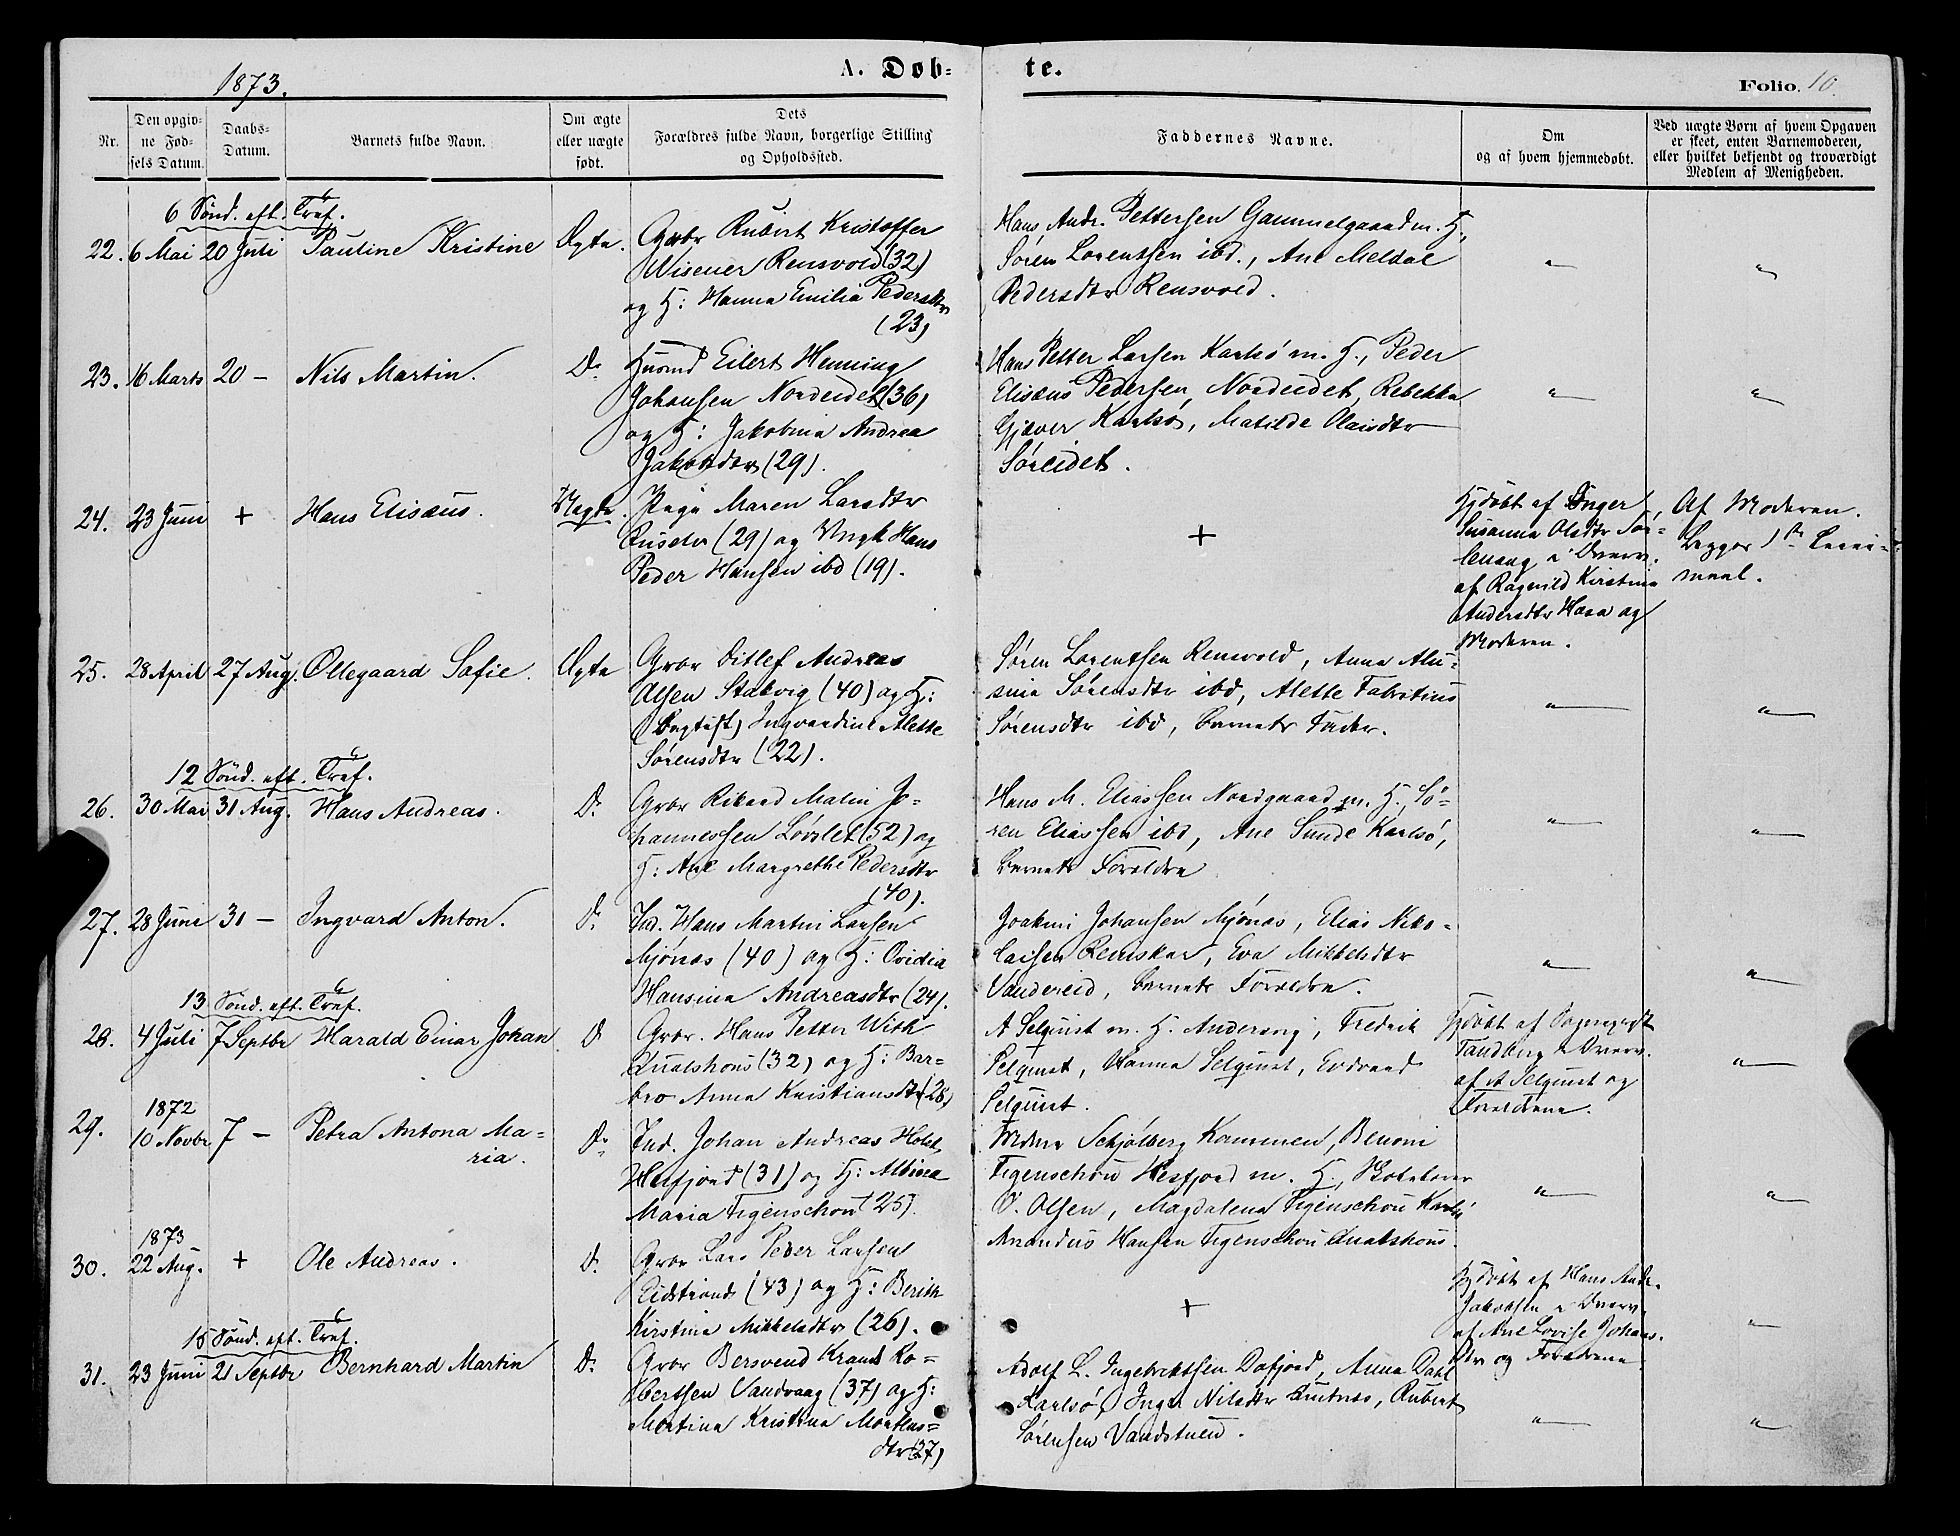 1873.
A. Døb-
te.
Folio. 10.
Nr.
Den opgiv-
ne Fød-
sels Datum.
Daabs-
Datum.
Barnets fulde Navn.
Om ægte
eller uægte
født.
Dets
Forældres fulde Navn, borgerlige Stilling
og Opholdssted.
Faddernes Navne.
Om
og af hvem hjemmedøbt.
Ved uægte Børn af hvem Opgaven
er skeet, enten Barnemoderen,
eller hvilket bekjendt og troværdigt
Medlem af Menigheden.
6 Sönd. eft. Tref.
22. 6 Mai 20 Juli Pauline Kristine Ægte.
Gbr Rubert Kristoffer
Wisener Rensvold (32)
og H: Hanna Emilia Pedersdtr
(23)
Hans Andr. Pettersen Gammelgaard m. H,
Sören Lorentsen ibd., Ane Meldal
Pedersdtr Rensvold.
23. 16 Marts 20 — Nils Martin. Do
Husmd Eilert Henning
Johansen Nordeidet (36)
og H: Jakobina Andrea
Jakobsdtr (29).
Hans Petter Larsen Karlsö m. H., Peder
Elisæus Pedersen, Nordeidet, Rebekka
Gjæver Karlsö, Matilde Olaisdtr
Söreidet.
24. 23 Juni + Hans Elisæus. Uægte.
Pige Maren Larsdtr
(29) og Ungk Hans
Peder Hansen ibd (19).
+
Hjdöbt af Inger
Susanna Olsdtr
i Overv.
af Ragnild Kirstina
Andersdtr og
Moderen.
Af Moderen.
Begges 1ste Leier-
maal.
25. 28 April 27 Aug. Ollegaard Sofie. Ægte
Gbr Ditlef Andreas
Olsen Stakvig (40) og H:
Ingvardine Alette
Sörensdtr (22).
Sören Lorentsen Rensvold, Anna
Sörensdtr ibd, Alette Fabritius
Sörensdtr ibd, Barnets Fader.
12 Sönd. eft. Tref.
26. 30 Mai 31 Aug. Hans Andreas. Do
Gbr Rikard Malin Jo-
hannessen (52) og
H: Ane Margrethe Pedersdtr
(40).
Hans M. Eliassen Nordgaard m. H., Sö-
ren Eliassen ibd, Ane Sunde Karlsö,
Barnets Forældre
27. 28 Juni 31 — Ingvard Anton. Do
Ind. Hans Martin Larsen
Mjönæs (40) og H: Ovidia
Hansina Andreasdtr (24).
Joakim Johansen Mjönæs, Elias Niko-
laisen Reinskar, Eva Mikkelsdtr
Vandereid, Barnets Forældre.
13 Sönd. eft. Tref.
28. 4 Juli 7 Septbr Harald Einar Johan Do
Gbr. Hans Petter With
Kualshous (32) og H: Bar-
bro Anna Kristiansdtr (28)
A Selquist m. H. Andersnj, Fredrik
Selquist, Hanna Selquist, Edvard
Selquist.
Hjdöbt af Sognepræst
Tandberg i Overv.
af A Selquist og
Forældrene.
29. 1872
10 Novbr 7 — Petra Antona Ma-
ria. Do
Ind. Johan Andreas Holst
Hesfjord (31) og H: Albina
Maria Figenschou (25).
Schjölberg Kammen, Benoni
Figenschou Hesfjord m. H.,
O. Olsen, Magdalena Figenschou Karlsö
Amandus Hansen Figenschou Kualshous.
1873
30. 22 Aug. + Ole Andreas. Do
Gbr Lars Peder Larsen
Eidstrand (43) og H: Berith
Kirstina Mikkelsdtr (26).
+
Hjdöbt af Hans Andr.
Jakobsen i Overv.
af Ane Lovise Johans-
dtr og Forældrene.
15 Sönd. eft. Tref.
31. 23 Juni 21 Septbr Bernhard Martin Do
Gbr Bersvend Krane Ro-
bertsen Vandvaag (37) og H:
Martina Kristina Morten-
dtr (37)
Adolf L. Ingebrigtsen Dafjord, Anna Dahl
Karlsö, Inger Nilsdtr, Rubert
Sörensen Vandstuen.